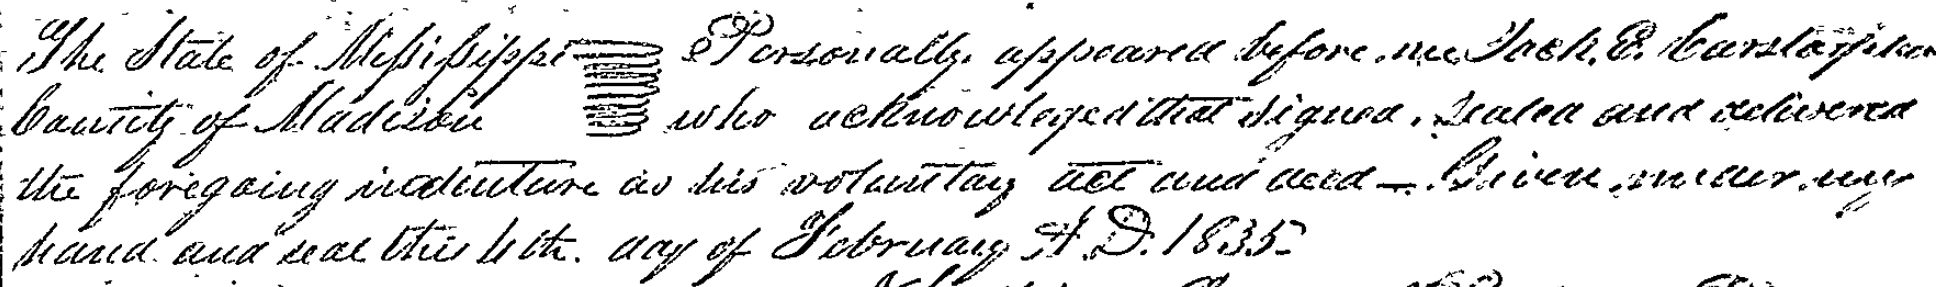 The State of Mississippi Personally appeared before me Zach. E.
County of Madison who acknowleged that signed, sealed and delivered
the foregoing indenture as his voluntary act and deed — Given under my
hand and seal this 4th. day of February A. D. 1835